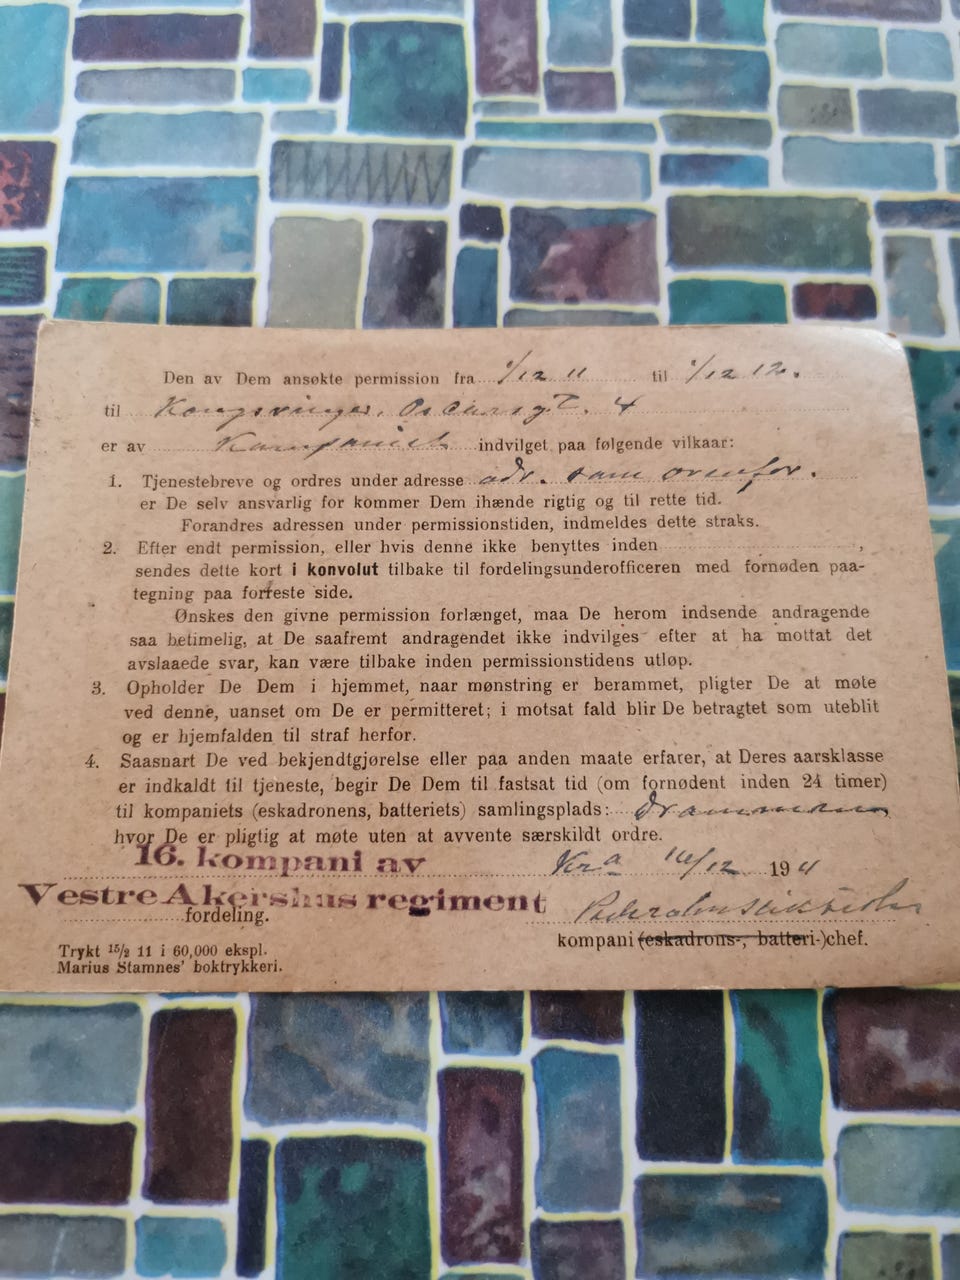 Den av Dem ansøkte permission fra 1/12 11 til 1/12 12.
til Kongsvinger, Oscarsgt. 4
er av Kompaniet indvilget paa følgende vilkaar:
1. Tjenestebreve og ordres under adresse adr. som ovenfor.
er De selv ansvarlig for kommer Dem ihænde rigtig og til rette tid.
Forandres adressen under permissionstiden, indmeldes dette straks.
2. Efter endt permission, eller hvis denne ikke benyttes inden ,
sendes dette kort i konvolut tilbake til fordelingsunderofficeren med fornøden paa-
tegning paa forreste side.
Ønskes den givne permission forlænget, maa De herom indsende andragende
saa betimelig, at De saafremt andragendet ikke indvilges efter at ha mottat det
avslaaede svar, kan være tilbake inden permissionstidens utløp.
3. Opholder De Dem i hjemmet, naar mønstring er berammet, pligter De at møte
ved denne, uanset om De er permitteret; i motsat fald blir De betragtet som uteblit
og er hjemfalden til straf herfor.
4. Saasnart De ved bekjendtgjørelse eller paa anden maate erfarer, at Deres aarsklasse
er indkaldt til tjeneste, begir De Dem til fastsat tid (om fornødent inden 24 timer)
til kompaniets (eskadronens, batteriets) samlingsplads: Drammen
hvor De er pligtig at møte uten at avvente særskildt ordre.
16. kompani av Kra /12 19 11
Vestre Akershus regiment
fordeling.
kompani (eskadrons-, batteri-)chef.
Trykt 15/2 11 i 60,000 ekspl.
Marius Stamnes' boktrykkeri.